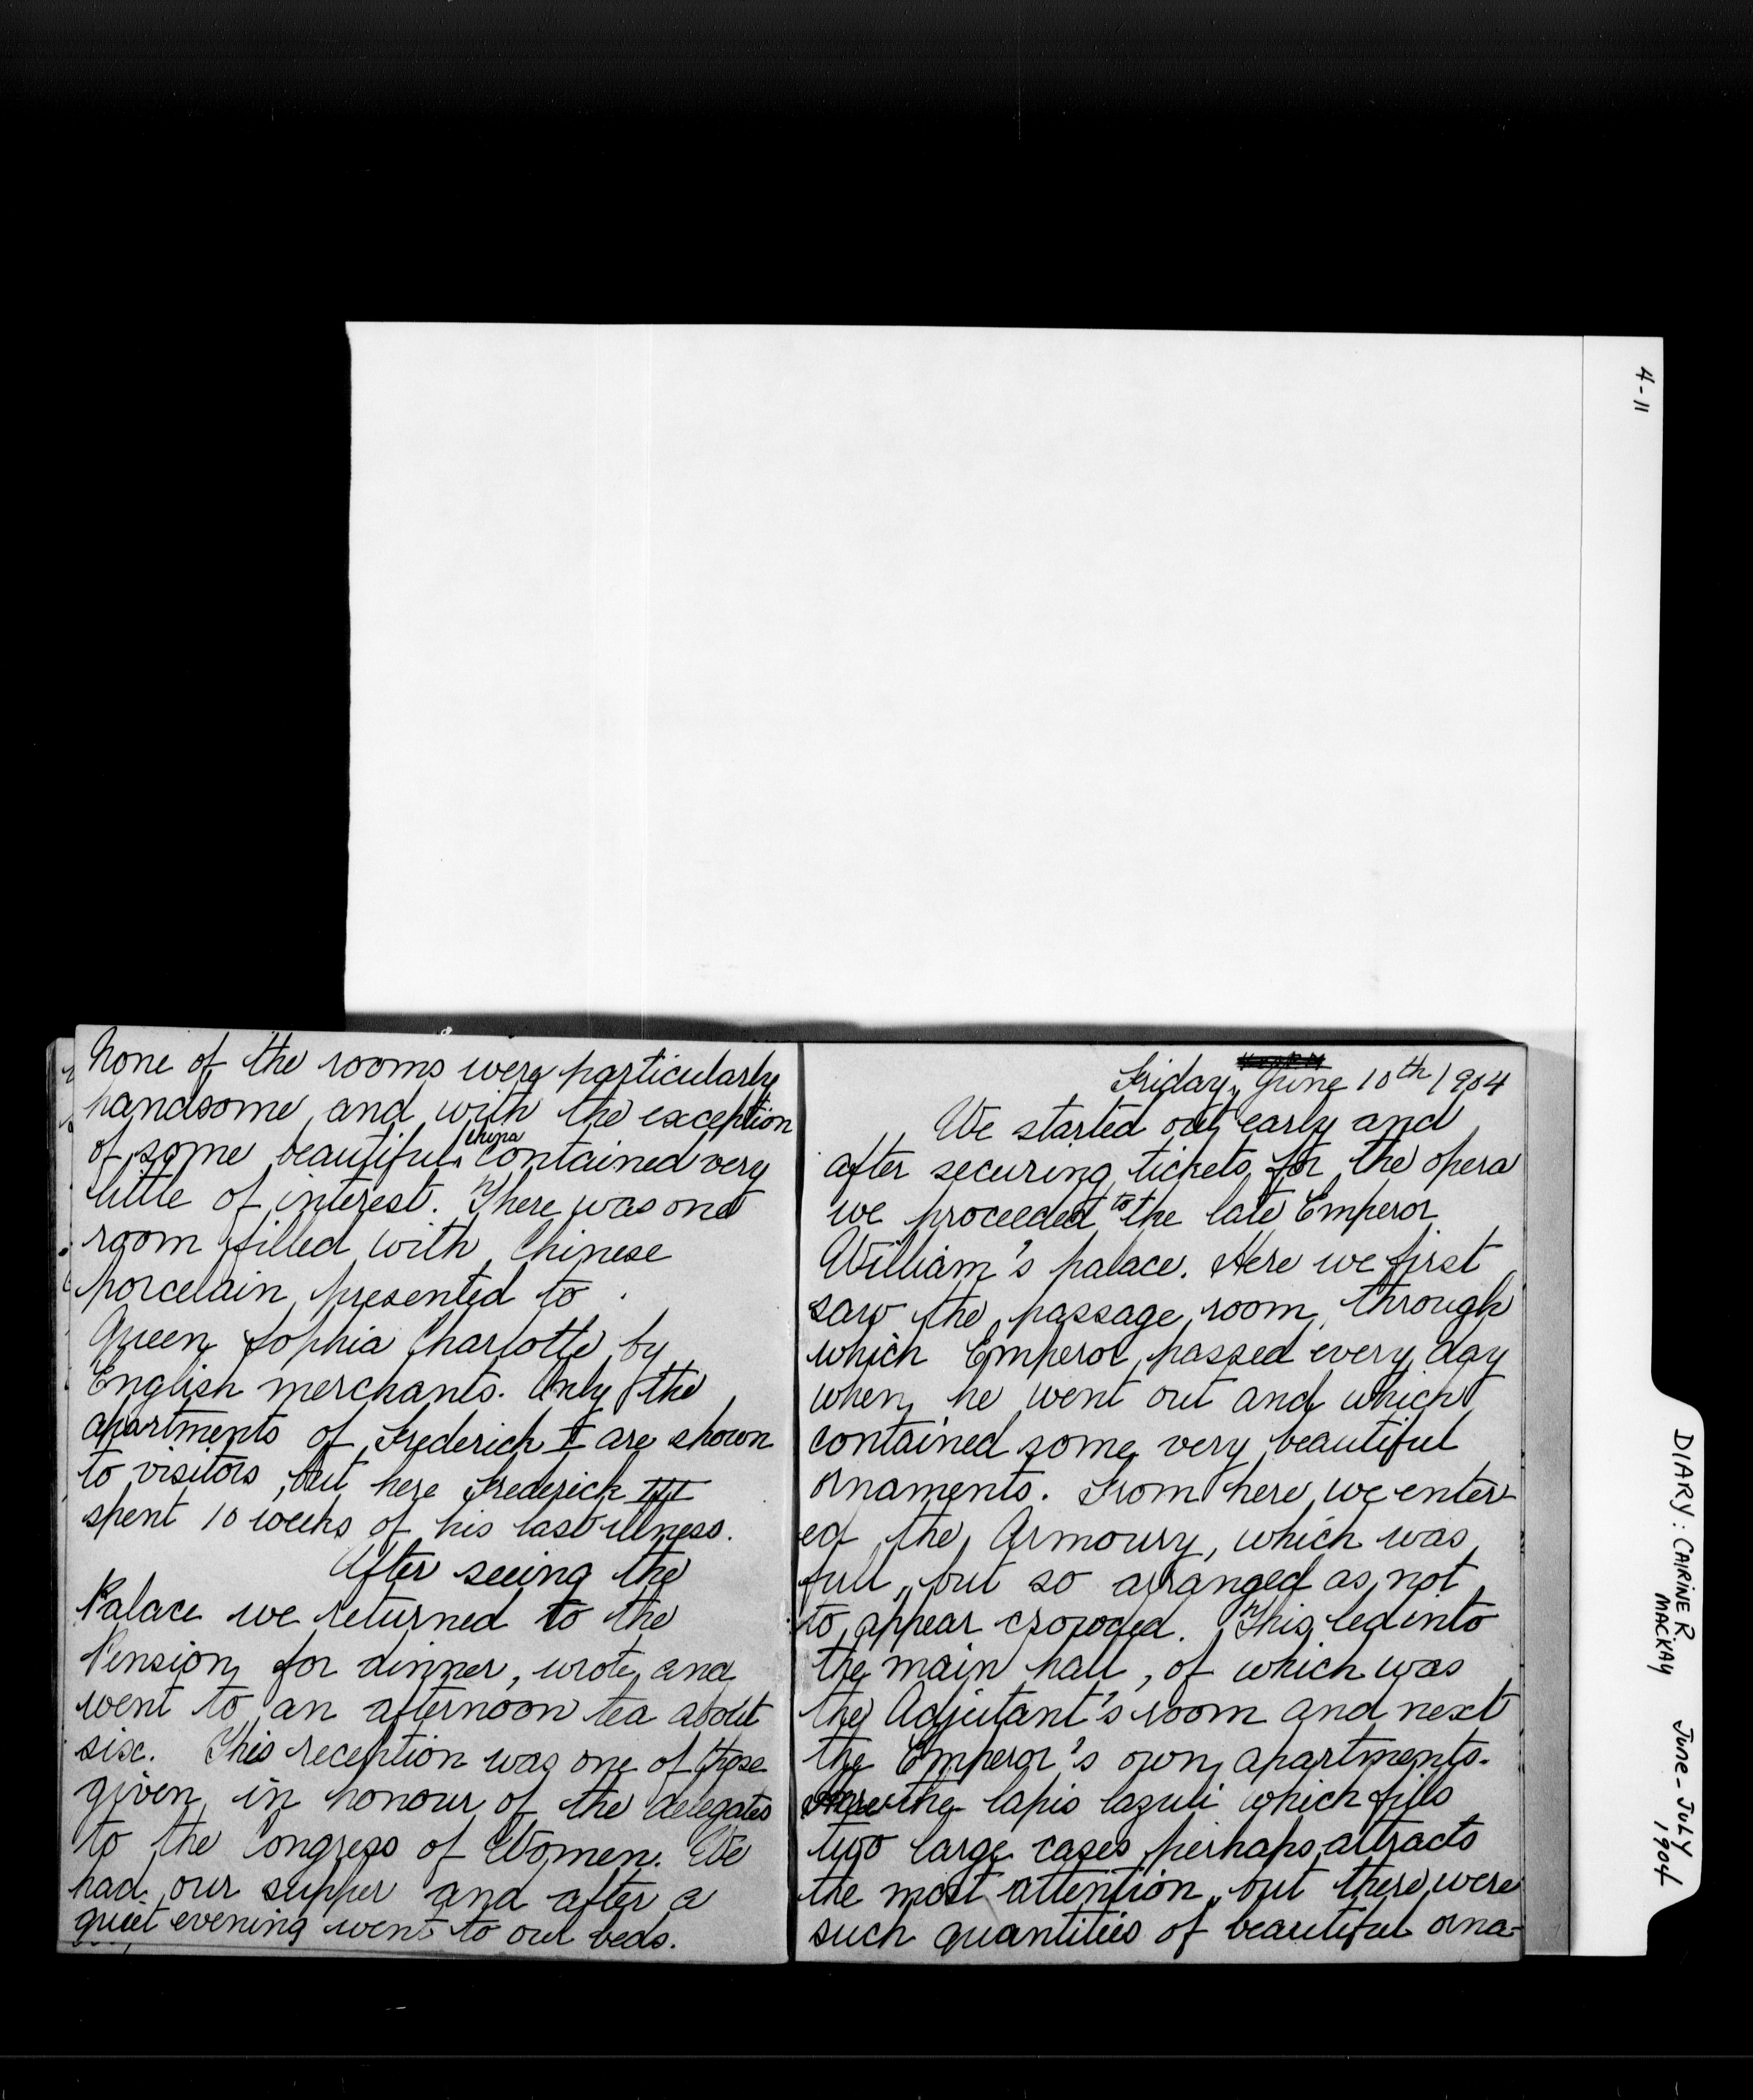 None of the rooms were particularly
handsome and with the exception
of some beautiful china contained very
little of interest. There was one
room filled with Chinese
porcelain presented to
Queen Sophia Charlotte by
English merchants. Only the
apartments of Frederick I are shown
to visitors, but here Frederick III
spent 10 weeks of his last illness.
After seeing the
Palace we returned to the
Pension for dinner, wrote and
went to an afternoon tea about
six. This reception was one of those
given in honour of the delegates
to the Congress of Women. We
had our supper and after a
quiet evening went to our beds.
Friday, June 10th 1904
We started out early and
after securing tickets for the opera
we proceeded to the late Emperor
William's palace. Here we first
saw the passage room, through
which Emperor passed every day
when he went out and which
contained some very beautiful
ornaments. From here we enter-
ed the Armoury, which was
full, but so arranged as not
to appear crowded. This led into
the main hall, of which was
the Adjutant's room and next
the Emperor's own apartments.
the lapis lazuli which fills
two large cases perhaps attracts
the most attention, but there were
such quantities of beautiful orna-
4-11
DIARY: CAIRINE R. MACKAY
JUNE-JULY 1904